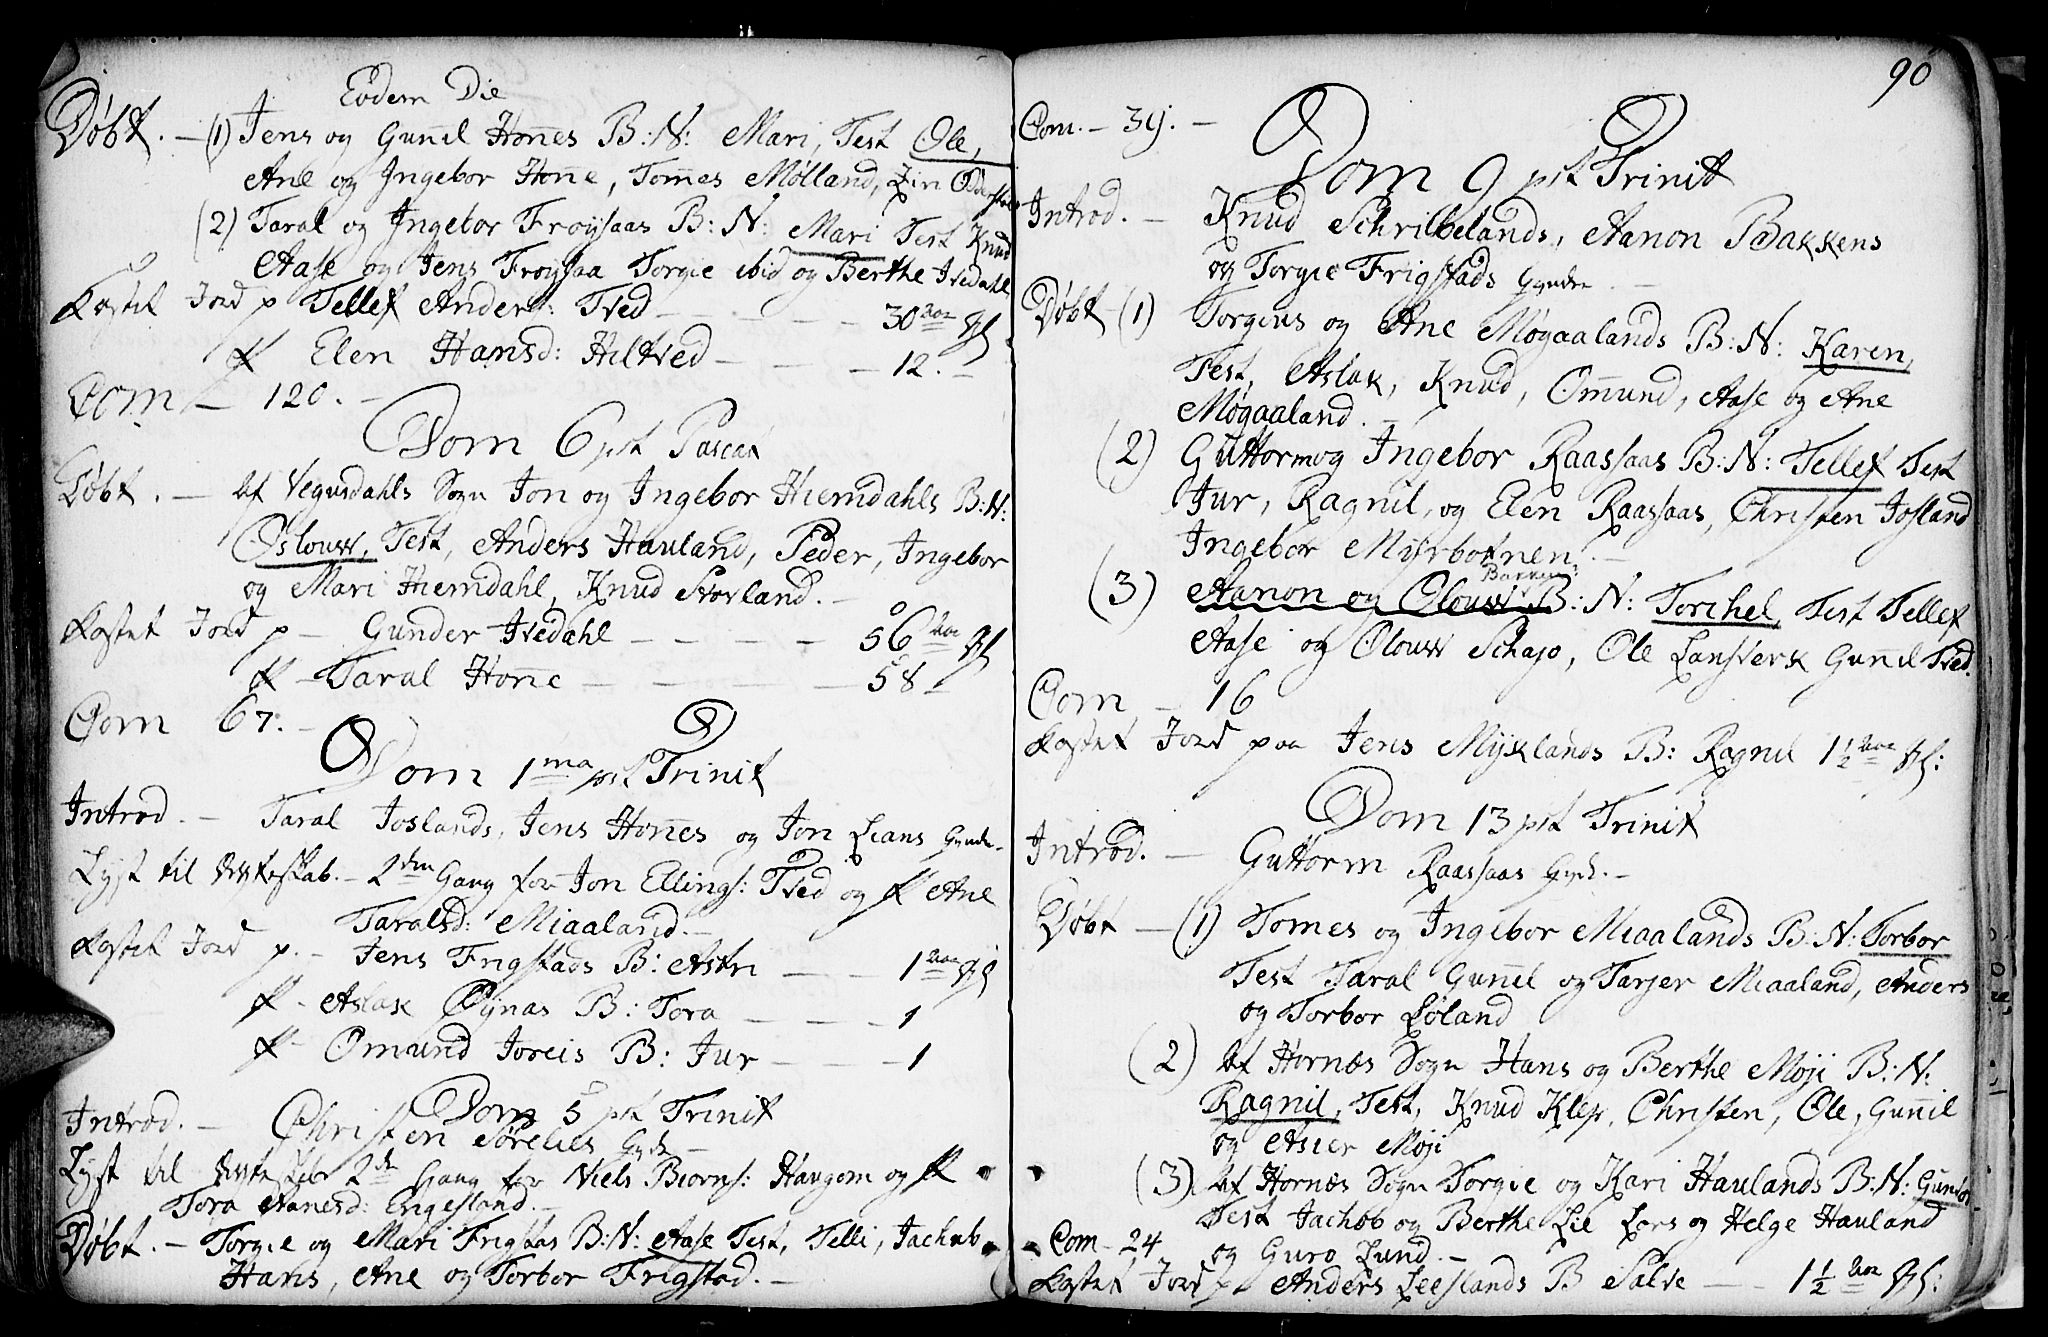 Eodem Die
Døbt. – (1) Jens og Gunnil Honnes B: N: Mari, Test Ole,
Ane og Ingebor Honne, Tommes Mølland,
(2) Taral og Ingebor Frøysaas B: N: Mari Test Knud
Aase og Jens Frøysaa Torgie ibid og Berthe Ivedahl
Kastet Jord p Tellef Anders: Tved – – – – 30 aar gl
dt Elen Hansd: Hiltved – – – 12. –
Com – 120. –
Dom 6 pst Pascat
Døbt. – Af Vegusdahls Sogn Jon og Ingebor Hiemdahls B: N:
Oslouw, Test, Anders Hauland, Peder, Ingebor
og Mari Hiemdahl, Knud Storland. –
Kastet Jord p – Gunder Ivedahl – – – – 56 aar gl
dt – Taral Honne – – – – 58 –
Com 67. –
Dom 1ma pst Trinit
Introd. – Taral Joslands, Jens Honnes og Jon Lians
Lyst til Ægteskab. – 2den Gang for Jon Ellings: Tved og dt Ane
Taralsd: Miaaland. –
Kastet Jord p. – Jens Frigstads B: Astri – – 1 aar gl
dt – Aslak Øynas B: Tora – – – 1
dt – Omund Joreis B: Jur – – – 1
Dom 5 pst Trinit
Introd. – Christen Sørelies –
Lyst til 2den Gang for Niels Biorns: Haugom og dt
Tora Aanesd: Engesland. –
Døbt. – Torgie og Mari Frigstas B: N: Aase Test, Telli, Jachob
Hans, Ane og Torbor Frigstad. –
90
Com. – 39. –
Dom 9 pst Trinit
Introd. – Knud Schriibelands, Aanon Bakkens
og Torgie Frigstads –
Døbt – (1) Torgius og Ane Møgaalands B: N: Karen,
Test, Aslak, Knud, Ommund, Aase og Ane
Møgaaland. –
(2) Guttorm og Ingebor Raassaas B: N: Tellef Test
Jur, Ragnil, og Elen Raassaas, Christen Josland
Ingebor Myrbotnen. –
Bakken
(3) Aanon og Olouw B: N: Torchel, Test Tellef
Aase og Olouw Schajo, Ole Lansverk Gunnil Tved.
Com – 16
Kastet Jord paa Jens Myklands B: Ragnil 1 1/2 aar gl:
Dom 13 pst Trinit
Introd. – Guttorm Raassaas –
Døbt – (1) Tomes og Ingebor Miaalands B: N: Torbor
Test Taral Gunnil og Tarjer Miaaland, Anders
og Torbor Løland
(2) Af Hornæs Sogn Hans og Berthe Moji B: N:
Ragnil, Test, Knud Klep, Christen, Ole, Gunnil
og Asier Moji
(3) Af Hornæs Sogn Torgie og Kari Haulands B: N: Gunder
Test Jachob og Berthe Lie Lars og Helge Hauland
Com – 24 og Guro Lund. –
Kastet Jord p Anders Leeslands B Salve – 1 1/2 aar gl: